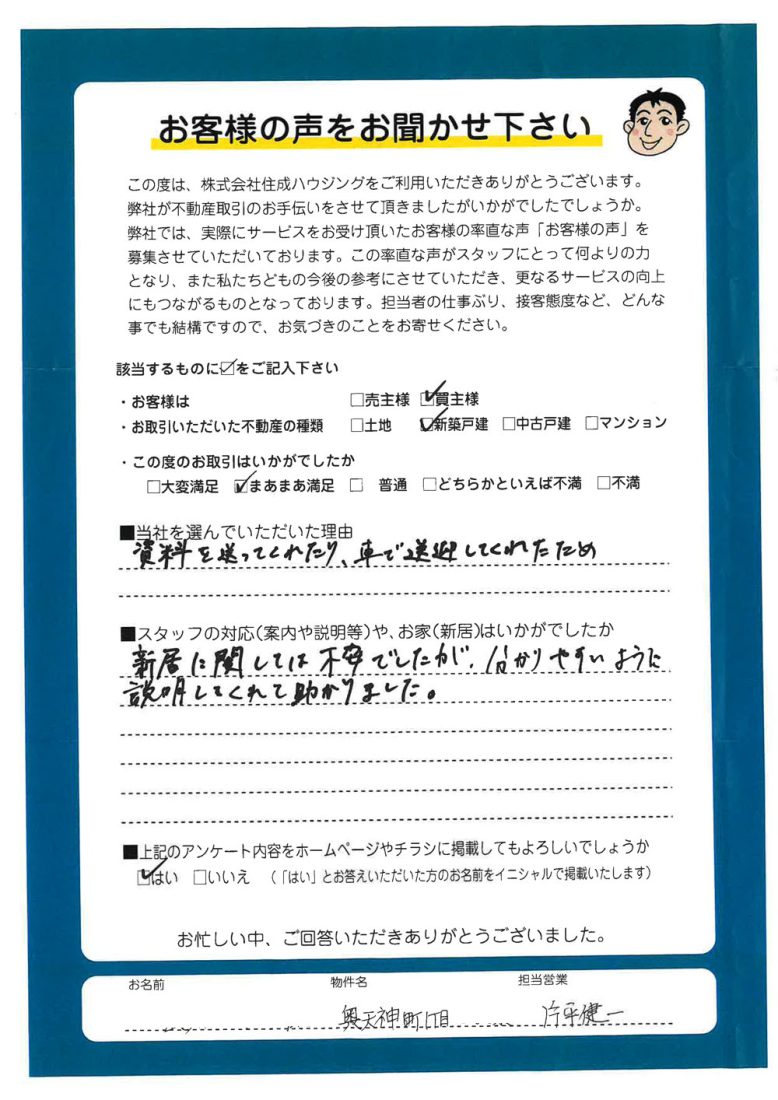 お客様の声をお聞かせ下さい
この度は、株式会社住成ハウジングをご利用いただきありがとうございます。
弊社が不動産取引のお手伝いをさせて頂きましたがいかがでしたでしょうか。
弊社では、実際にサービスをお受け頂いたお客様の率直な声「お客様の声」を
募集させていただいております。この率直な声がスタッフにとって何よりの力
となり、また私たちどもの今後の参考にさせていただき、更なるサービスの向上
にもつながるものとなっております。担当者の仕事ぶり、接客態度など、どんな
事でも結構ですので、お気づきのことをお寄せください。
該当するものに☑をご記入下さい
・お客様は □売主様 ☑買主様
・お取引いただいた不動産の種類 □土地 ☑新築戸建 □中古戸建 □マンション
・この度のお取引はいかがでしたか
□大変満足 ☑まあまあ満足 □ 普通 □どちらかといえば不満 □不満
■当社を選んでいただいた理由
資料を送ってくれたり、車で送迎してくれたため
■スタッフの対応(案内や説明等)や、お家(新居)はいかがでしたか
新居に関しては不安でしたが、分かりやすいように
説明してくれて助かりました。
■上記のアンケート内容をホームページやチラシに掲載してもよろしいでしょうか
☑はい □いいえ （「はい」とお答えいただいた方のお名前をイニシャルで掲載いたします）
お忙しい中、ご回答いただきありがとうございました。
お名前 物件名 担当営業
奥天神町1丁目 片平健一